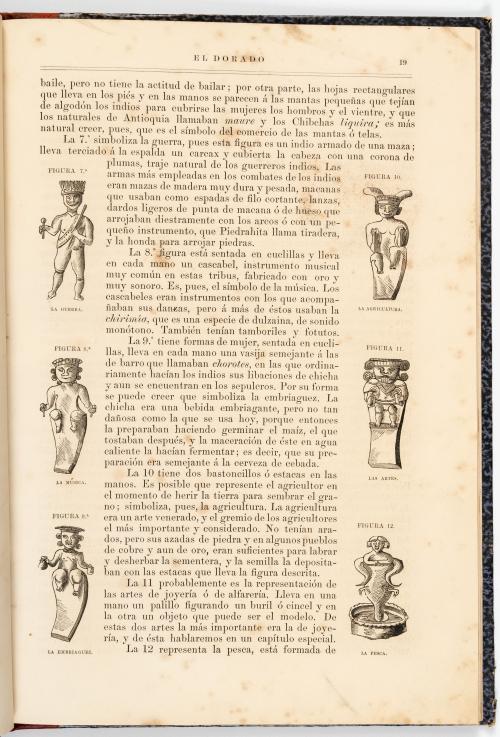 EL DORADO 19
baile, pero no tiene la actitud de bailar; por otra parte, las hojas rectangulares
que lleva en los piés y en las manos se parecen á las mantas pequeñas que tejían
de algodón los indios para cubrirse las mujeres los hombros y el vientre, y que
los naturales de Antioquia llamaban maure y los Chibchas liquira; es más
natural creer, pues, que es el símbolo del comercio de las mantas ó telas.
La 7.ª simboliza la guerra, pues esta figura es un indio armado de una maza;
lleva terciado á la espalda un carcax y cubierta la cabeza con una corona de
plumas, traje natural de los guerreros indios. Las
armas más empleadas en los combates de los indios
eran mazas de madera muy dura y pesada, macanas
que usaban como espadas de filo cortante, lanzas,
dardos ligeros de punta de macana ó de hueso que
arrojaban diestramente con los arcos ó con un pe-
queño instrumento, que Piedrahita llama tiradera,
y la honda para arrojar piedras.
La 8.ª figura está sentada en cuclillas y lleva
en cada mano un cascabel, instrumento musical
muy común en estas tribus, fabricado con oro y
muy sonoro. Es, pues, el símbolo de la música. Los
cascabeles eran instrumentos con los que acompa-
ñaban sus danzas, pero á más de éstos usaban la
chirimía, que es una especie de dulzaina, de sonido
monótono. También tenían tamboriles y fotutos.
La 9.ª tiene formas de mujer, sentada en cucli-
llas, lleva en cada mano una vasija semejante á las
de barro que llamaban chorotes, en las que ordina-
riamente hacían los indios sus libaciones de chicha
y aun se encuentran en los sepulcros. Por su forma
se puede creer que simboliza la embriaguez. La
chicha era una bebida embriagante, pero no tan
dañosa como la que se usa hoy, porque entonces
la preparaban haciendo germinar el maíz, el que
tostaban después, y la maceración de éste en agua
caliente la hacían fermentar; es decir, que su pre-
paración era semejante á la cerveza de cebada.
La 10 tiene dos bastoncillos ó estacas en las
manos. Es posible que represente el agricultor en
el momento de herir la tierra para sembrar el gra-
no; simboliza, pues, la agricultura. La agricultura
era un arte venerado, y el gremio de los agricultores
el más importante y considerado. No tenían ara-
dos, pero sus azadas de piedra y en algunos pueblos
de cobre y aun de oro, eran suficientes para labrar
y desherbar la sementera, y la semilla la deposita-
ban con las estacas que lleva la figura descrita.
La 11 probablemente es la representación de
las artes de joyería ó de alfarería. Lleva en una
mano un palillo figurando un buril ó cincel y en
la otra un objeto que puede ser el modelo. De
estas dos artes la más importante era la de joye-
ría, y de ésta hablaremos en un capítulo especial.
La 12 representa la pesca, está formada de
FIGURA 7.ª
LA GUERRA.
FIGURA 8.ª
LA MÚSICA.
FIGURA 9.ª
LA EMBRIAGUEZ.
FIGURA 10.
LA AGRICULTURA.
FIGURA 11.
LAS ARTES.
FIGURA 12.
LA PESCA.